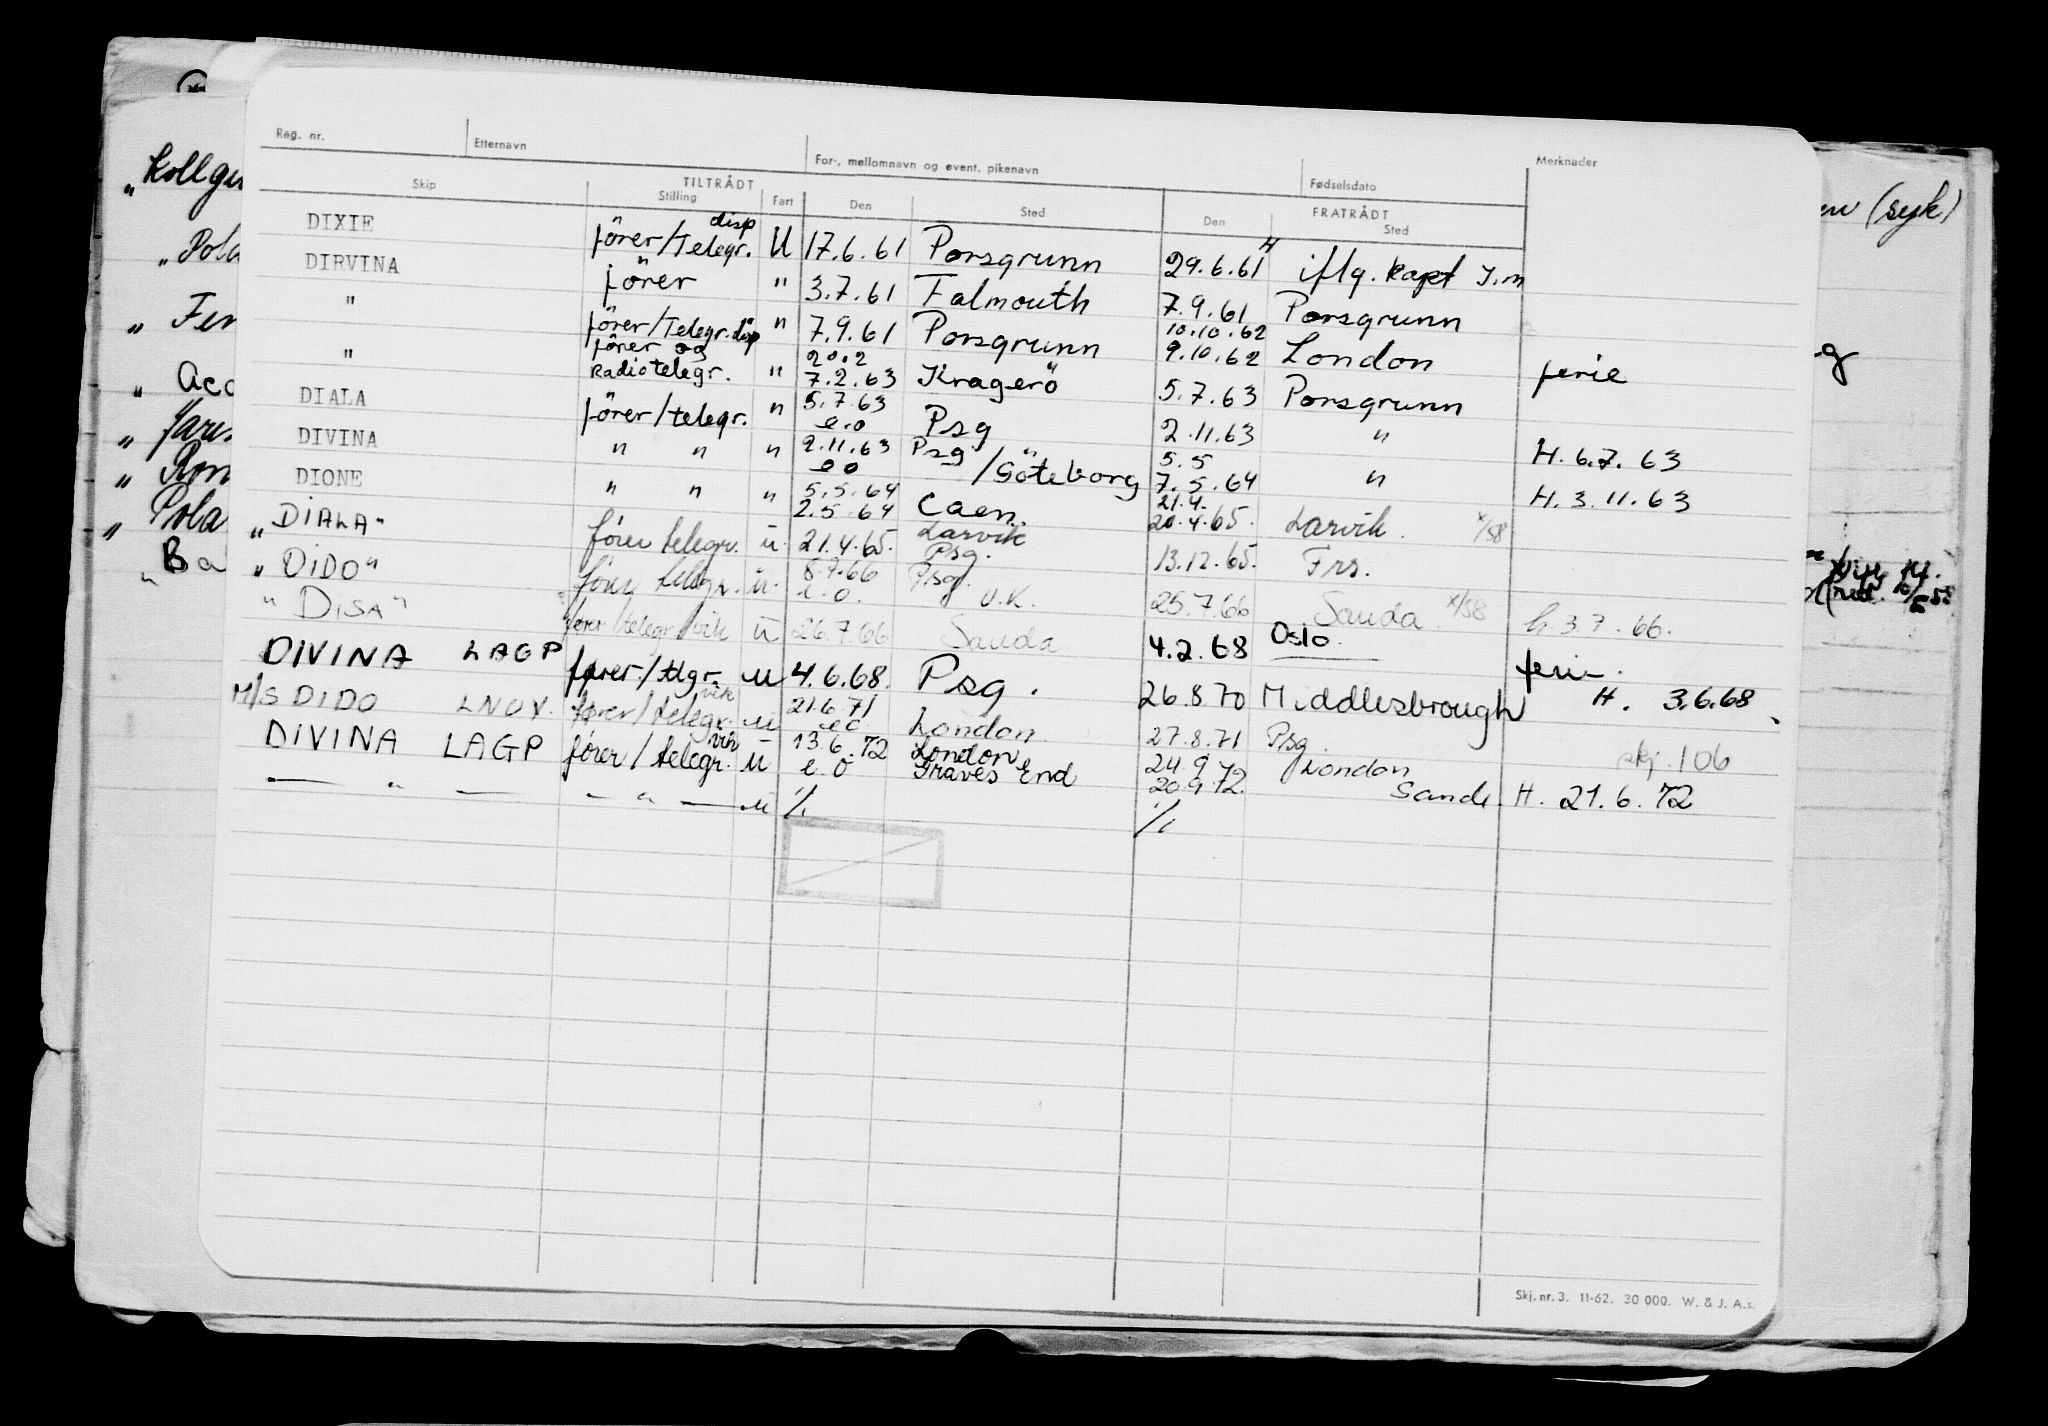 Reg. nr. Etternavn For-, mellomnavn og event. pikenavn Fødselsdato Merknader
Skip TILTRÅDT Stilling Fart Den Sted FRATRÅDT Den Sted
"Kollgu
"Pola
"Fer
"Acc
"Jaru
"Ron
"Pola
"Ba
en (syk)
g
DIXIE förer/Telegr. disp U 17.6.61 Porsgrunn 29.6.61 H iflg. kapt J.m
DIRVINA förer " 3.7.61 Falmouth 7.9.61 Porsgrunn
" förer/Telegr. disp " 7.9.61 Porsgrunn 10.10.62 9.10.62 London ferie
" förer og Radiotelegr. " 20.2 7.2.63 Kragerö 5.7.63 Porsgrunn
DIALA förer/telegr. " 5.7.63 e.o Psg 2.11.63 " H. 6.7.63
DIVINA " " " 2.11.63 e o Psg /Göteborg 5.5 7.5.64 " H. 3.11.63
DIONE " " " 5.5.64 2.5.64 Caen. 21.4. 20.4.65. Larvik. x/58
"DIALA" förer telegr. u. 21.4.65. Larvik Psg. 13.12.65. Frs.
"DIDO" förer telegr. u. 8.7.66 e.o. Psg. U.K. 25.7.66 Sauda x/58 h. 3.7.66.
"DISA" förer/telegr./vik u 26.7.66 Sauda 4.2.68 Oslo. feri-.
DIVINA LAGP fører./tlgr. u 4.6.68. Psg. 26.8.70 Middlesbrough H. 3.6.68
M/S DIDO LNUV. fører/telegr. vik u 21.6.71 e o London 27.8.71 Psg. skj. 106
DIVINA LAGP fórer/telegr. vik u 13.6.72 e.o London Graves End 24.9.72 20.9.72. London Sande. H. 21.6.72
— " — — " — u %. %.
Skj. nr. 3. 11-62. 30 000. W. & J. A.s.